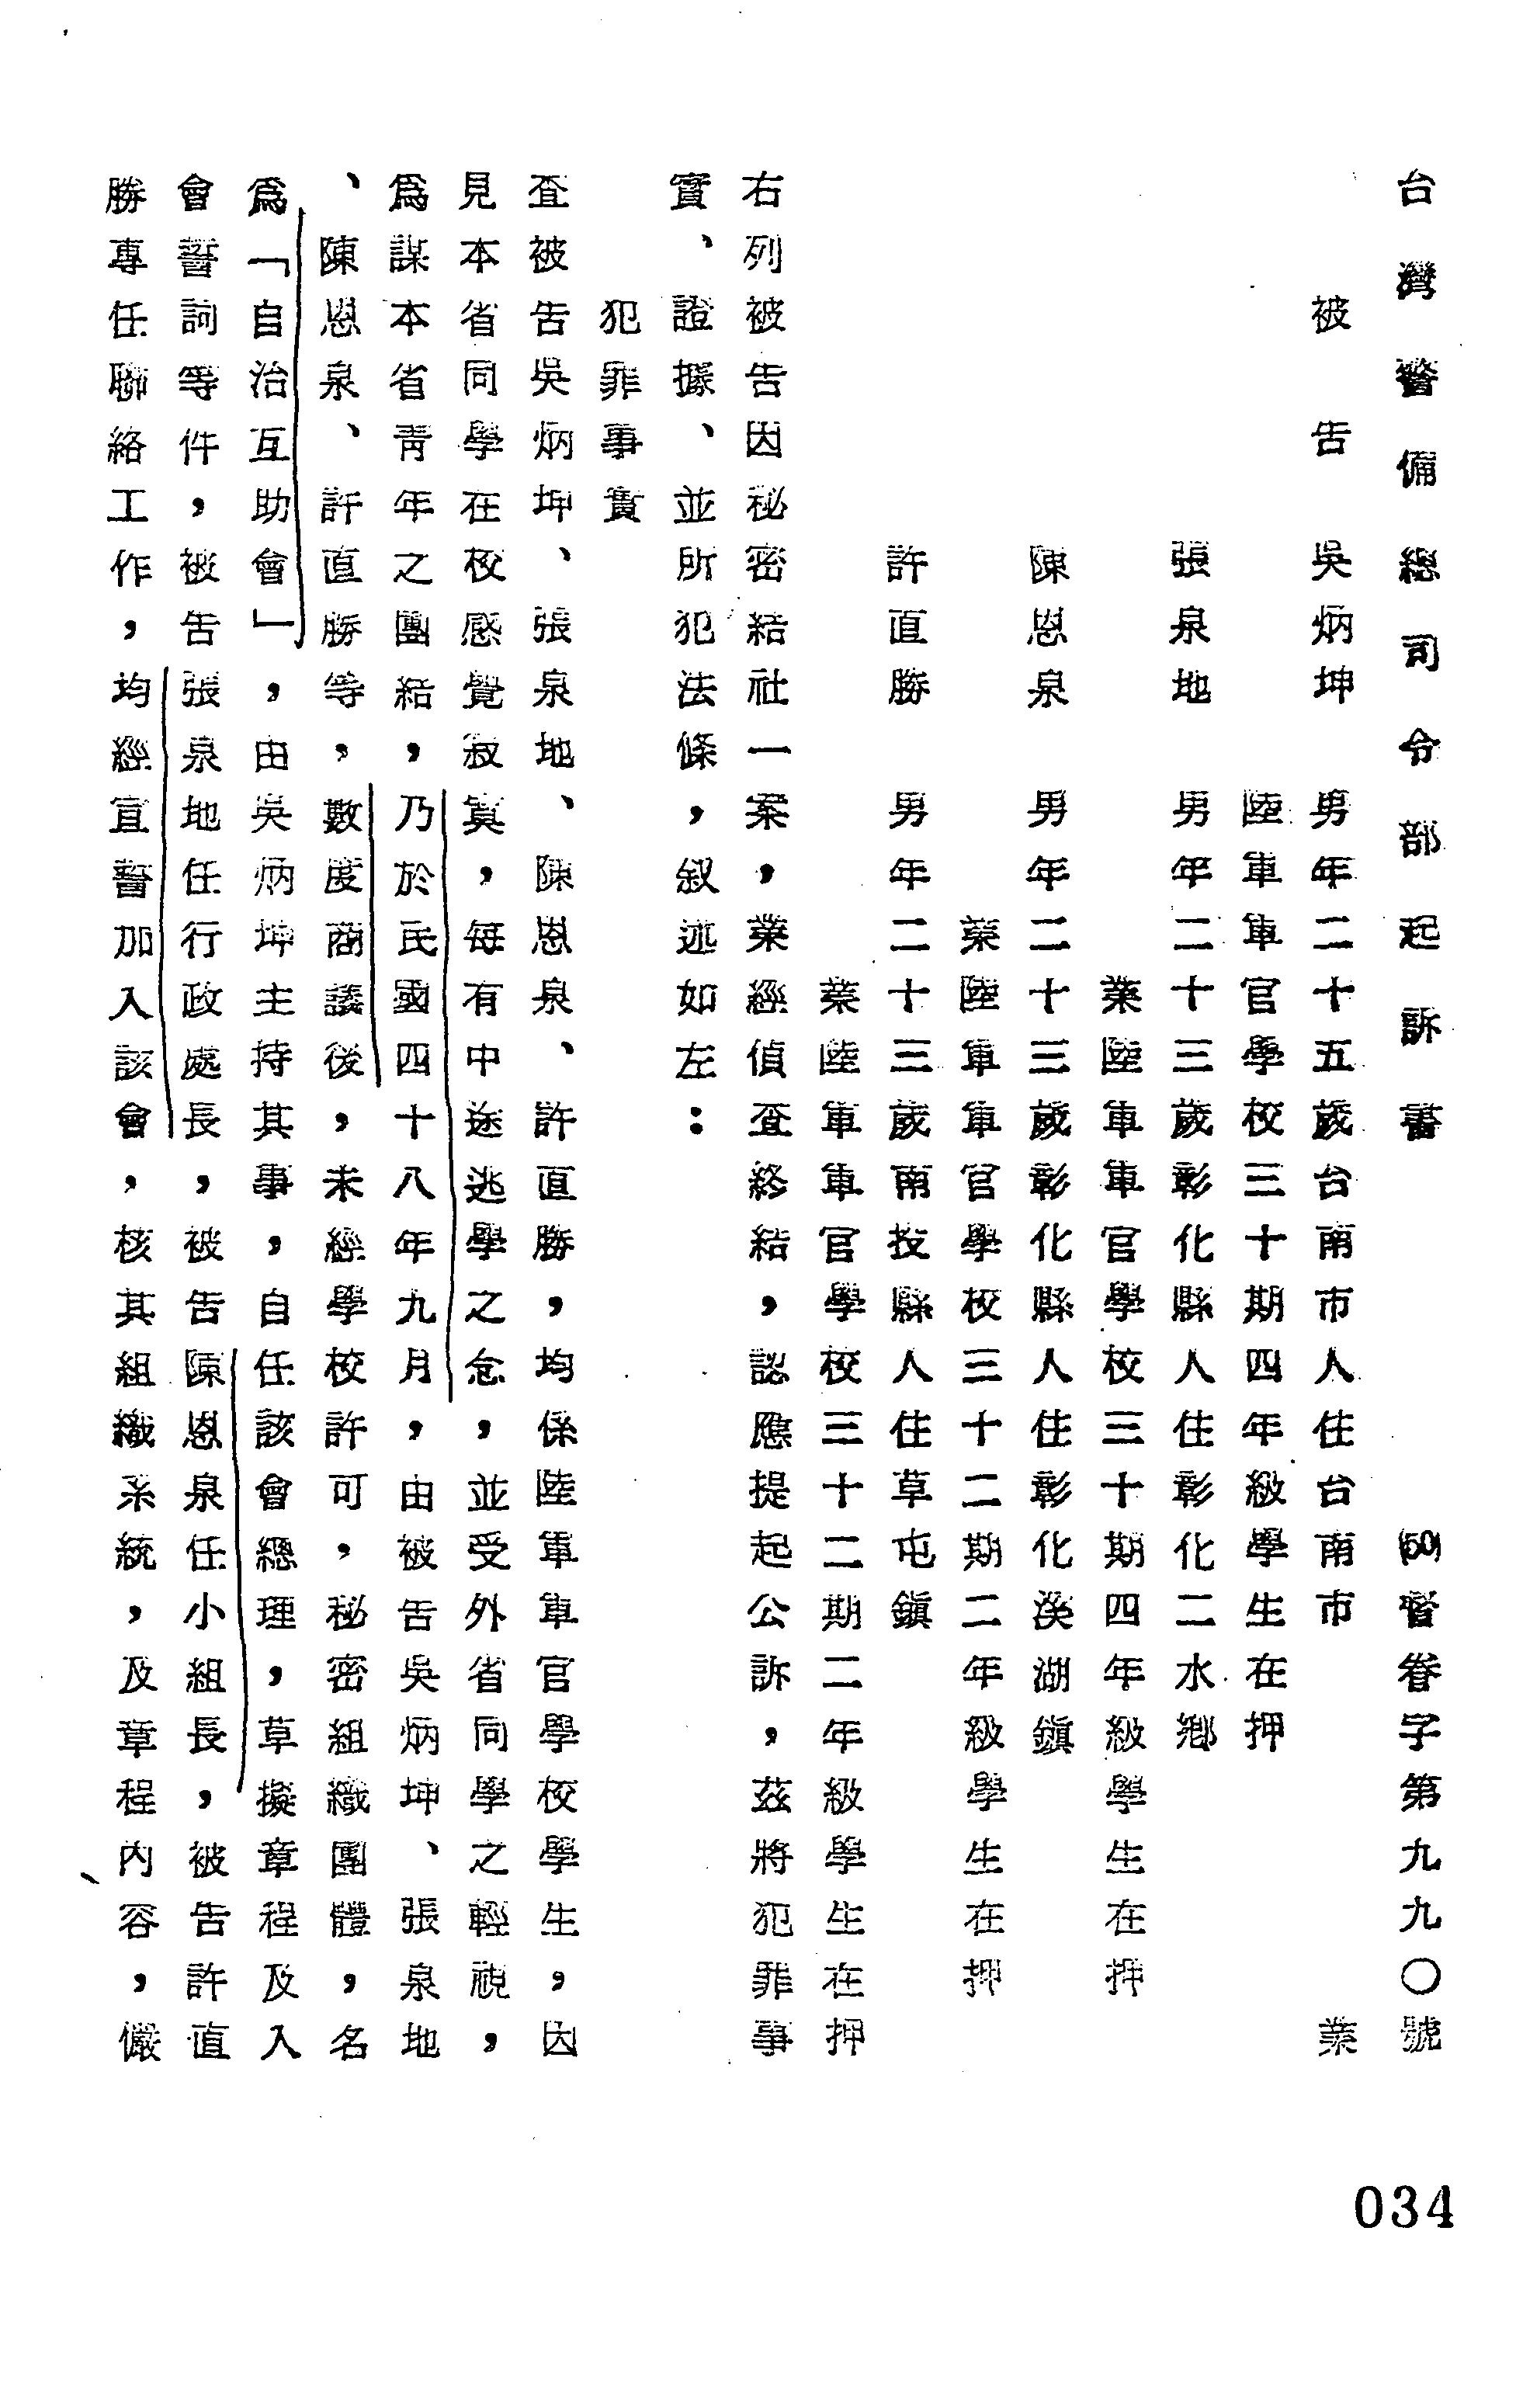 台灣警備總司令部起訴書 (50)警眷字第九九〇號
被告 吳炳坤 男年二十五歲台南市人住台南市 業
陸軍軍官學校三十期四年級學生在押
張泉地 男年二十三歲彰化縣人住彰化二水鄉
業陸軍軍官學校三十期四年級學生在押
陳恩泉 男年二十三歲彰化縣人住彰化溪湖鎮
業陸軍軍官學校三十二期二年級學生在押
許直勝 男年二十三歲南投縣人住草屯鎮
業陸軍軍官學校三十二期二年級學生在押
右列被告因秘密結社一案,業經偵查終結,認應提起公訴,茲將犯罪事
實、證據、並所犯法條,叙述如左:
犯罪事實
查被告吳炳坤、張泉地、陳恩泉、許直勝,均係陸軍軍官學校學生,因
見本省同學在校感覺寂寞,每有中途逃學之念,並受外省同學之輕視,
為謀本省青年之團結,乃於民國四十八年九月,由被告吳炳坤、張泉地
、陳恩泉、許直勝等,數度商議後,未經學校許可,秘密組織團體,名
為「自治互助會」,由吳炳坤主持其事,自任該會總理,草擬章程及入
會誓詞等件,被告張泉地任行政處長,被告陳恩泉任小組長,被告許直
勝專任聯絡工作,均經宣誓加入該會,核其組織系統,及章程內容,儼
034